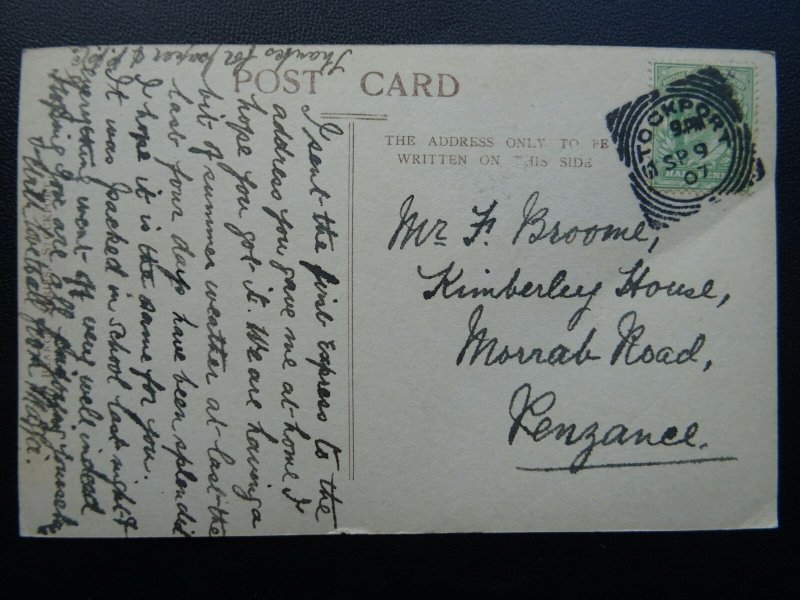 Thanks for paper & p.p.c.
POST CARD
THE ADDRESS ONLY TO BE
WRITTEN ON THIS SIDE
STOCKPORT
9.PM
SP 9
07
I sent the first Express to the
address you gave me at home I
hope you got it. We are having a
bit of summer weather at last the
last four days have been splendid
I hope it is the same for you.
It was packed in school last night &
everything went off very well indeed
Hoping you are all enjoying yourselves
Mr F. Broome,
Kimberley House,
Morrab Road,
Penzance.